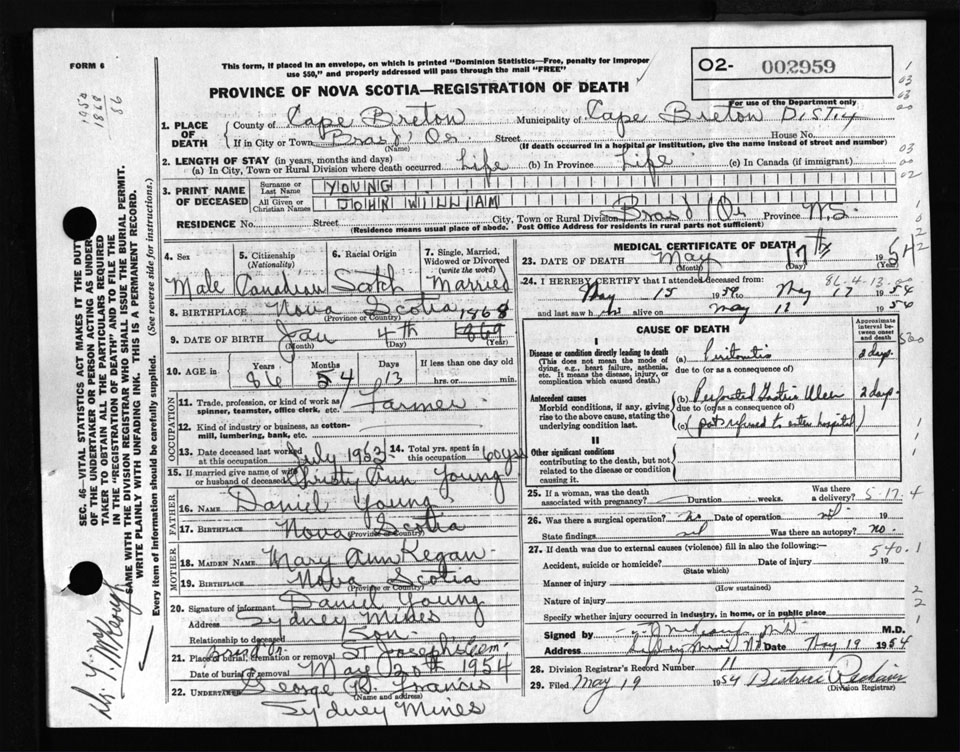 FORM 6
This form, if placed in an envelope, on which is printed "Dominion Statistics—Free, penalty for improper
use $50," and properly addressed will pass through the mail "FREE"
O2- 002959
For use of the Department only
PROVINCE OF NOVA SCOTIA—REGISTRATION OF DEATH
1950
1868
86
1. PLACE OF DEATH
County of Cape Breton Municipality of Cape Breton Dist 4
If in City or Town Bras d'Or Street House No.
(Name) (If death occurred in a hospital or institution, give the name instead of street and number)
2. LENGTH OF STAY (in years, months and days)
(a) In City, Town or Rural Division where death occurred Life (b) In Province Life (c) In Canada (if immigrant)
3. PRINT NAME OF DECEASED
Surname or Last Name YOUNG
All Given or Christian Names JOHN WILLIAM
RESIDENCE No. Street City, Town or Rural Division Bras d'Or Province N.S.
(Residence means usual place of abode. Post Office Address for residents in rural parts not sufficient)
4. Sex Male
5. Citizenship (Nationality) Canadian
6. Racial Origin Scotch
7. Single, Married, Widowed or Divorced (write the word) Married
8. BIRTHPLACE Nova Scotia
(Province or Country)
9. DATE OF BIRTH Jan 4th 1868 1869
(Month) (Day) (Year)
10. AGE in Years Months Days If less than one day old
86 4 13 hrs. or min.
OCCUPATION
11. Trade, profession, or kind of work as spinner, teamster, office clerk, etc. Farmer
12. Kind of industry or business, as cotton-mill, lumbering, bank, etc.
13. Date deceased last worked at this occupation July 1953 14. Total yrs. spent in this occupation 60 yrs
15. If married give name of wife or husband of deceased Christy Ann Young
FATHER
16. NAME Daniel Young
17. BIRTHPLACE Nova Scotia
(Province or Country)
MOTHER
18. MAIDEN NAME Mary Ann Regan
19. BIRTHPLACE Nova Scotia
(Province or Country)
20. Signature of informant Daniel Young
Address Sydney Mines
Relationship to deceased Son
21. Place of burial, cremation or removal Bras d'Or St Joseph's Cem.
Date of burial or removal May 20th 1954
22. UNDERTAKER George R. Francis
(Name and address)
Sydney Mines
MEDICAL CERTIFICATE OF DEATH
23. DATE OF DEATH May 17th 1954
(Month) (Day) (Year)
86-4-13
24. I HEREBY CERTIFY that I attended deceased from:
May 15 1954 to May 17 1954
and last saw h alive on May 1954
CAUSE OF DEATH
Approximate interval between onset and death
I
Disease or condition directly leading to death
(This does not mean the mode of dying, e.g., heart failure, asthenia, etc. It means the disease, injury, or complication which caused death.)
(a) Peritonitis 2 days
due to (or as a consequence of)
Antecedent causes
Morbid conditions, if any, giving rise to the above cause, stating the underlying condition last.
(b) Perforated Gastric Ulcer 2 days
due to (or as a consequence of)
(c) (pat refused to enter hospital)
II
Other significant conditions
contributing to the death, but not related to the disease or condition causing it.
25. If a woman, was the death associated with pregnancy? Duration weeks. Was there a delivery?
5-17-4
26. Was there a surgical operation? no Date of operation nil 19
State findings nil Was there an autopsy? no.
27. If death was due to external causes (violence) fill in also the following:—
540.1
Accident, suicide or homicide? Date of injury 19
(State which)
Manner of injury
(How sustained)
Nature of injury
Specify whether injury occurred in industry, in home, or in public place
Signed by M.D.
Address Sydney Mines NS Date May 19 1954
28. Division Registrar's Record Number 11
29. Filed May 19 1954 Beatrice
(Division Registrar)
SEC. 46—VITAL STATISTICS ACT MAKES IT THE DUTY
OF THE UNDERTAKER OR PERSON ACTING AS UNDER-
TAKER TO OBTAIN ALL THE PARTICULARS REQUIRED
IN THE "REGISTRATION OF DEATH" AND TO FILE THE
SAME WITH THE DIVISION REGISTRAR WHO SHALL ISSUE THE BURIAL PERMIT.
WRITE PLAINLY WITH UNFADING INK. THIS IS A PERMANENT RECORD.
Every item of information should be carefully supplied. (See reverse side for instructions.)